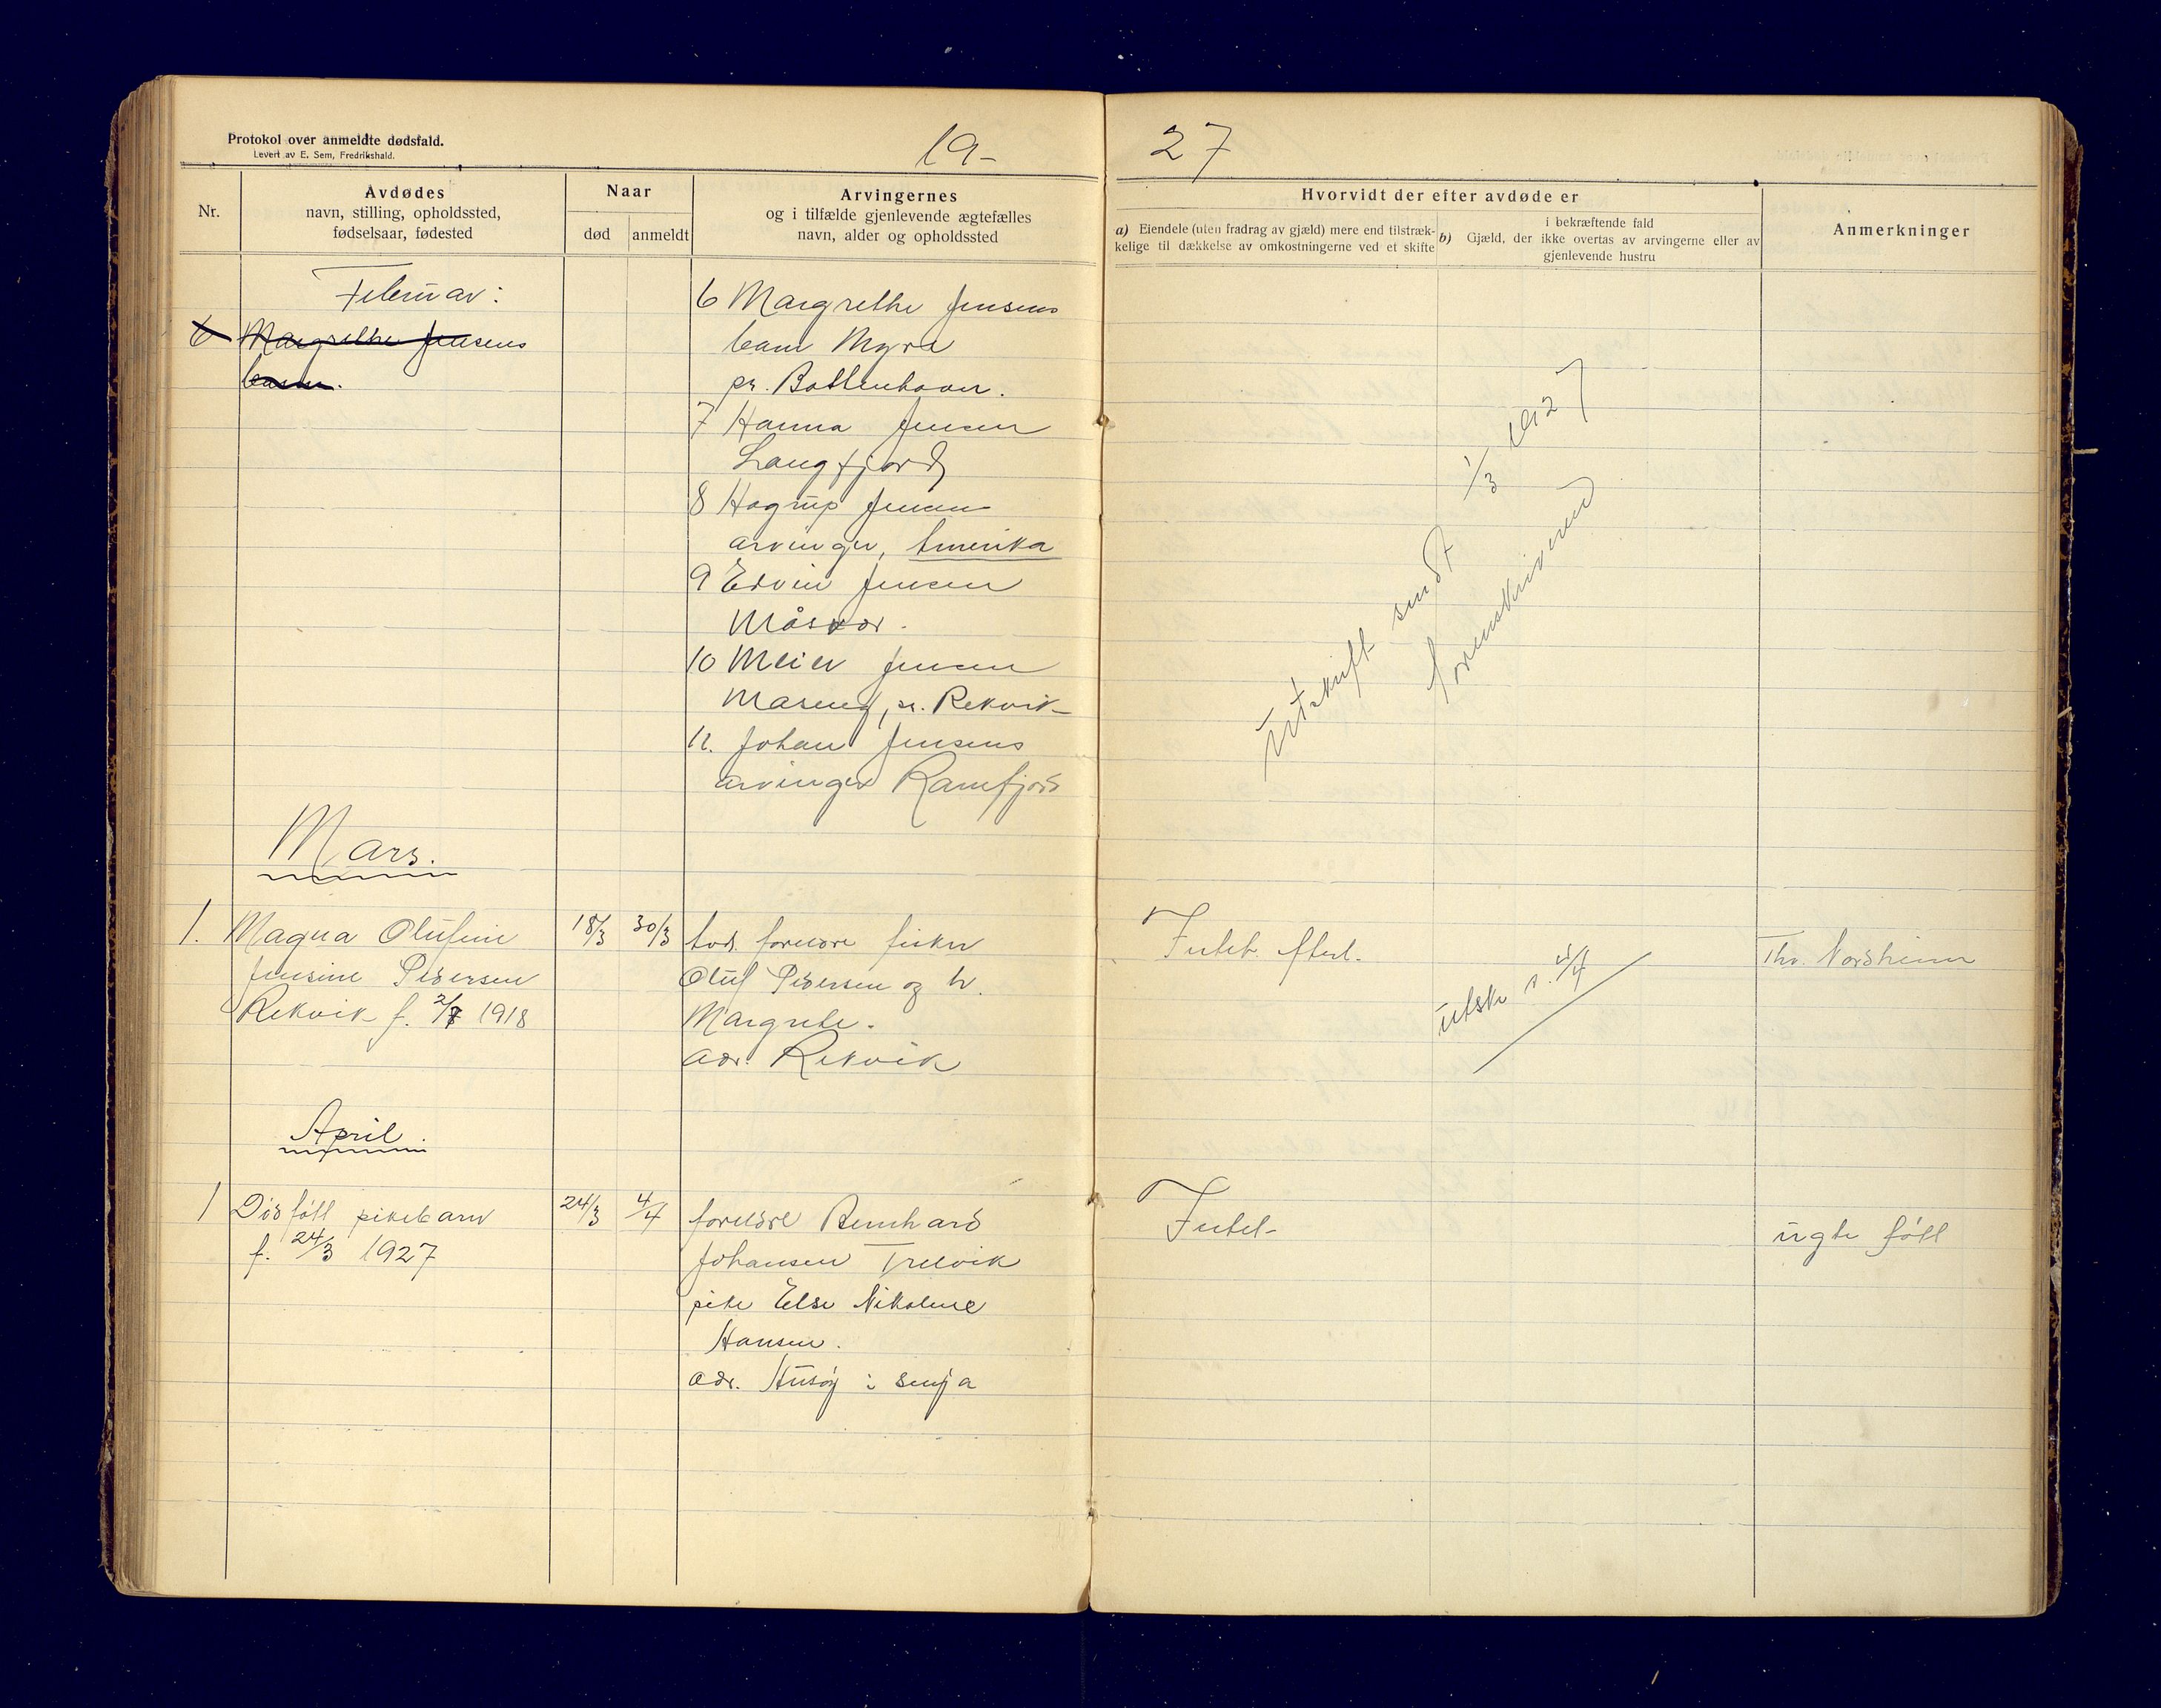 Protokol over anmeldte dødsfald.
Levert av E. Sem, Fredrikshald.
19-
27
Nr.
Avdødes
navn, stilling, opholdssted,
fødselsaar, fødested
Naar
død
anmeldt
Arvingernes
og i tilfælde gjenlevende ægtefælles
navn, alder og opholdssted
Hvorvidt der efter avdøde er
a) Eiendele (uten fradrag av gjæld) mere end tilstræk-
kelige til dækkelse av omkostningerne ved et skifte
b) i bekræftende fald
Gjæld, der ikke overtas av arvingerne eller av
gjenlevende hustru
Anmerkninger
Februar:
6 Margrethe Jensens
barn.
6 Margrethe Jensens
barn Myra
pr.
7 Hanna Jensen
Langfjord
8 Hagrup Jensen
arvinger, Amerika
9 Edvin Jensen
Måsvær.
10 Meier Jensen
Mareng, pr. Rekvik
11. Johan Jensens
arvinger Ramfjord
Utskrift sendt 1/3 1927
sorenskriveren
Mars.
1. Magna Olufine
Jensine Pedersen
Rekvik f. 2/7 1918
18/3
30/3
forældre fisker
Oluf Pedersen og h.
Margrete.
adr. Rekvik
Intet efterl.
utskr s. 4/4
Thv. Nordheim
April.
1 Dødfött pikebarn
f. 24/3 1927
24/3
4/4
forældre Bernhard
Johansen Trelvik
pike Else Nikoline
Hansen.
adr. Husøy i Senja
Intet-
ugte fött